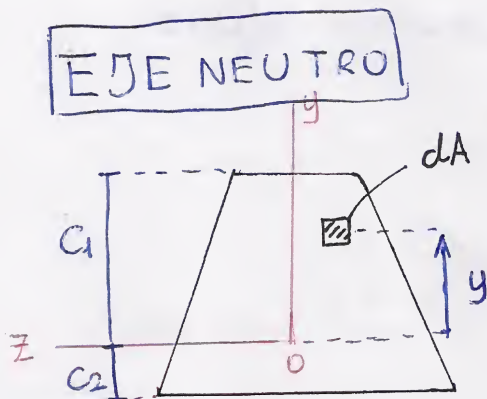 EJE NEUTRO
y
dA
C1
y
z
O
C2